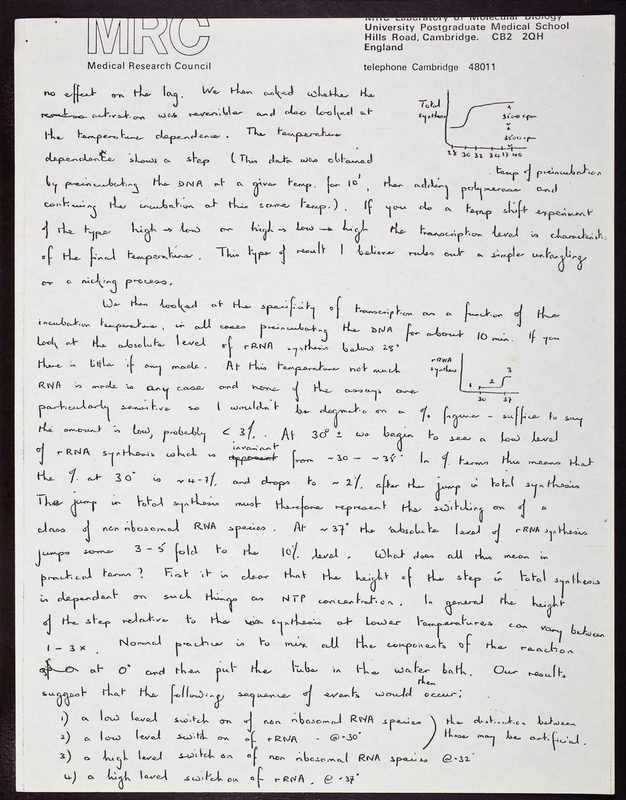 MRC
Medical Research Council
MRC Laboratory of Molecular Biology
University Postgraduate Medical School
Hills Road, Cambridge. CB2 2QH
England
telephone Cambridge 48011
no effect on the lag. We then asked whether the
activation was reversible and also looked at
the temperature dependence. The temperature
dependence shows a step (This data was obtained
by preincubating the DNA at a given temp. for 10', then adding polymerase and
continuing the incubation at this same temp.). If you do a temp shift experiment
of the type high → low or high → low → high the transcription level is characteristic
of the final temperature. This type of result I believe rules out a simple untangling
or a nicking process.
Total
synthesis
3500 cpm
28 30 32 34 37 40
temp of preincubation
We then looked at the specificity of transcription as a function of the
incubation temperature, in all cases preincubating the DNA for about 10 min. If you
look at the absolute level of rRNA synthesis below 28°
there is little if any made. At this temperature not much
RNA is made in any case and none of the assays are
rRNA
synthesis
1 2 3
30 37
particularly sensitive so I wouldn't be dogmatic on a % figure - suffice to say
the amount is low, probably < 3%. At 30° ± we begin to see a low level
of rRNA synthesis which is invariant from ~30 - ~35°. In % terms this means that
the % at 30° is ~4-7% and drops to ~2% after the jump in total synthesis
This jump in total synthesis must therefore represent the switching on of a
class of non ribosomal RNA species. At ~37° the absolute level of rRNA synthesis
jumps some 3-5 fold to the 10% level. What does all this mean in
practical terms? First it is clear that the height of the step in total synthesis
is dependent on such things as NTP concentration. In general the height
of the step relative to the synthesis at lower temperatures can vary between
1 - 3x. Normal practice is to mix all the components of the reaction
at 0° and then put the tube in the water bath. Our results
suggest that the following sequence of events would then occur;
1) a low level switch on of non ribosomal RNA species ) the distinction between
2) a low level switch on of rRNA - @~30° ) these may be artificial.
3) a high level switch on of non ribosomal RNA species @~32°
4) a high level switch on of rRNA. @~37°